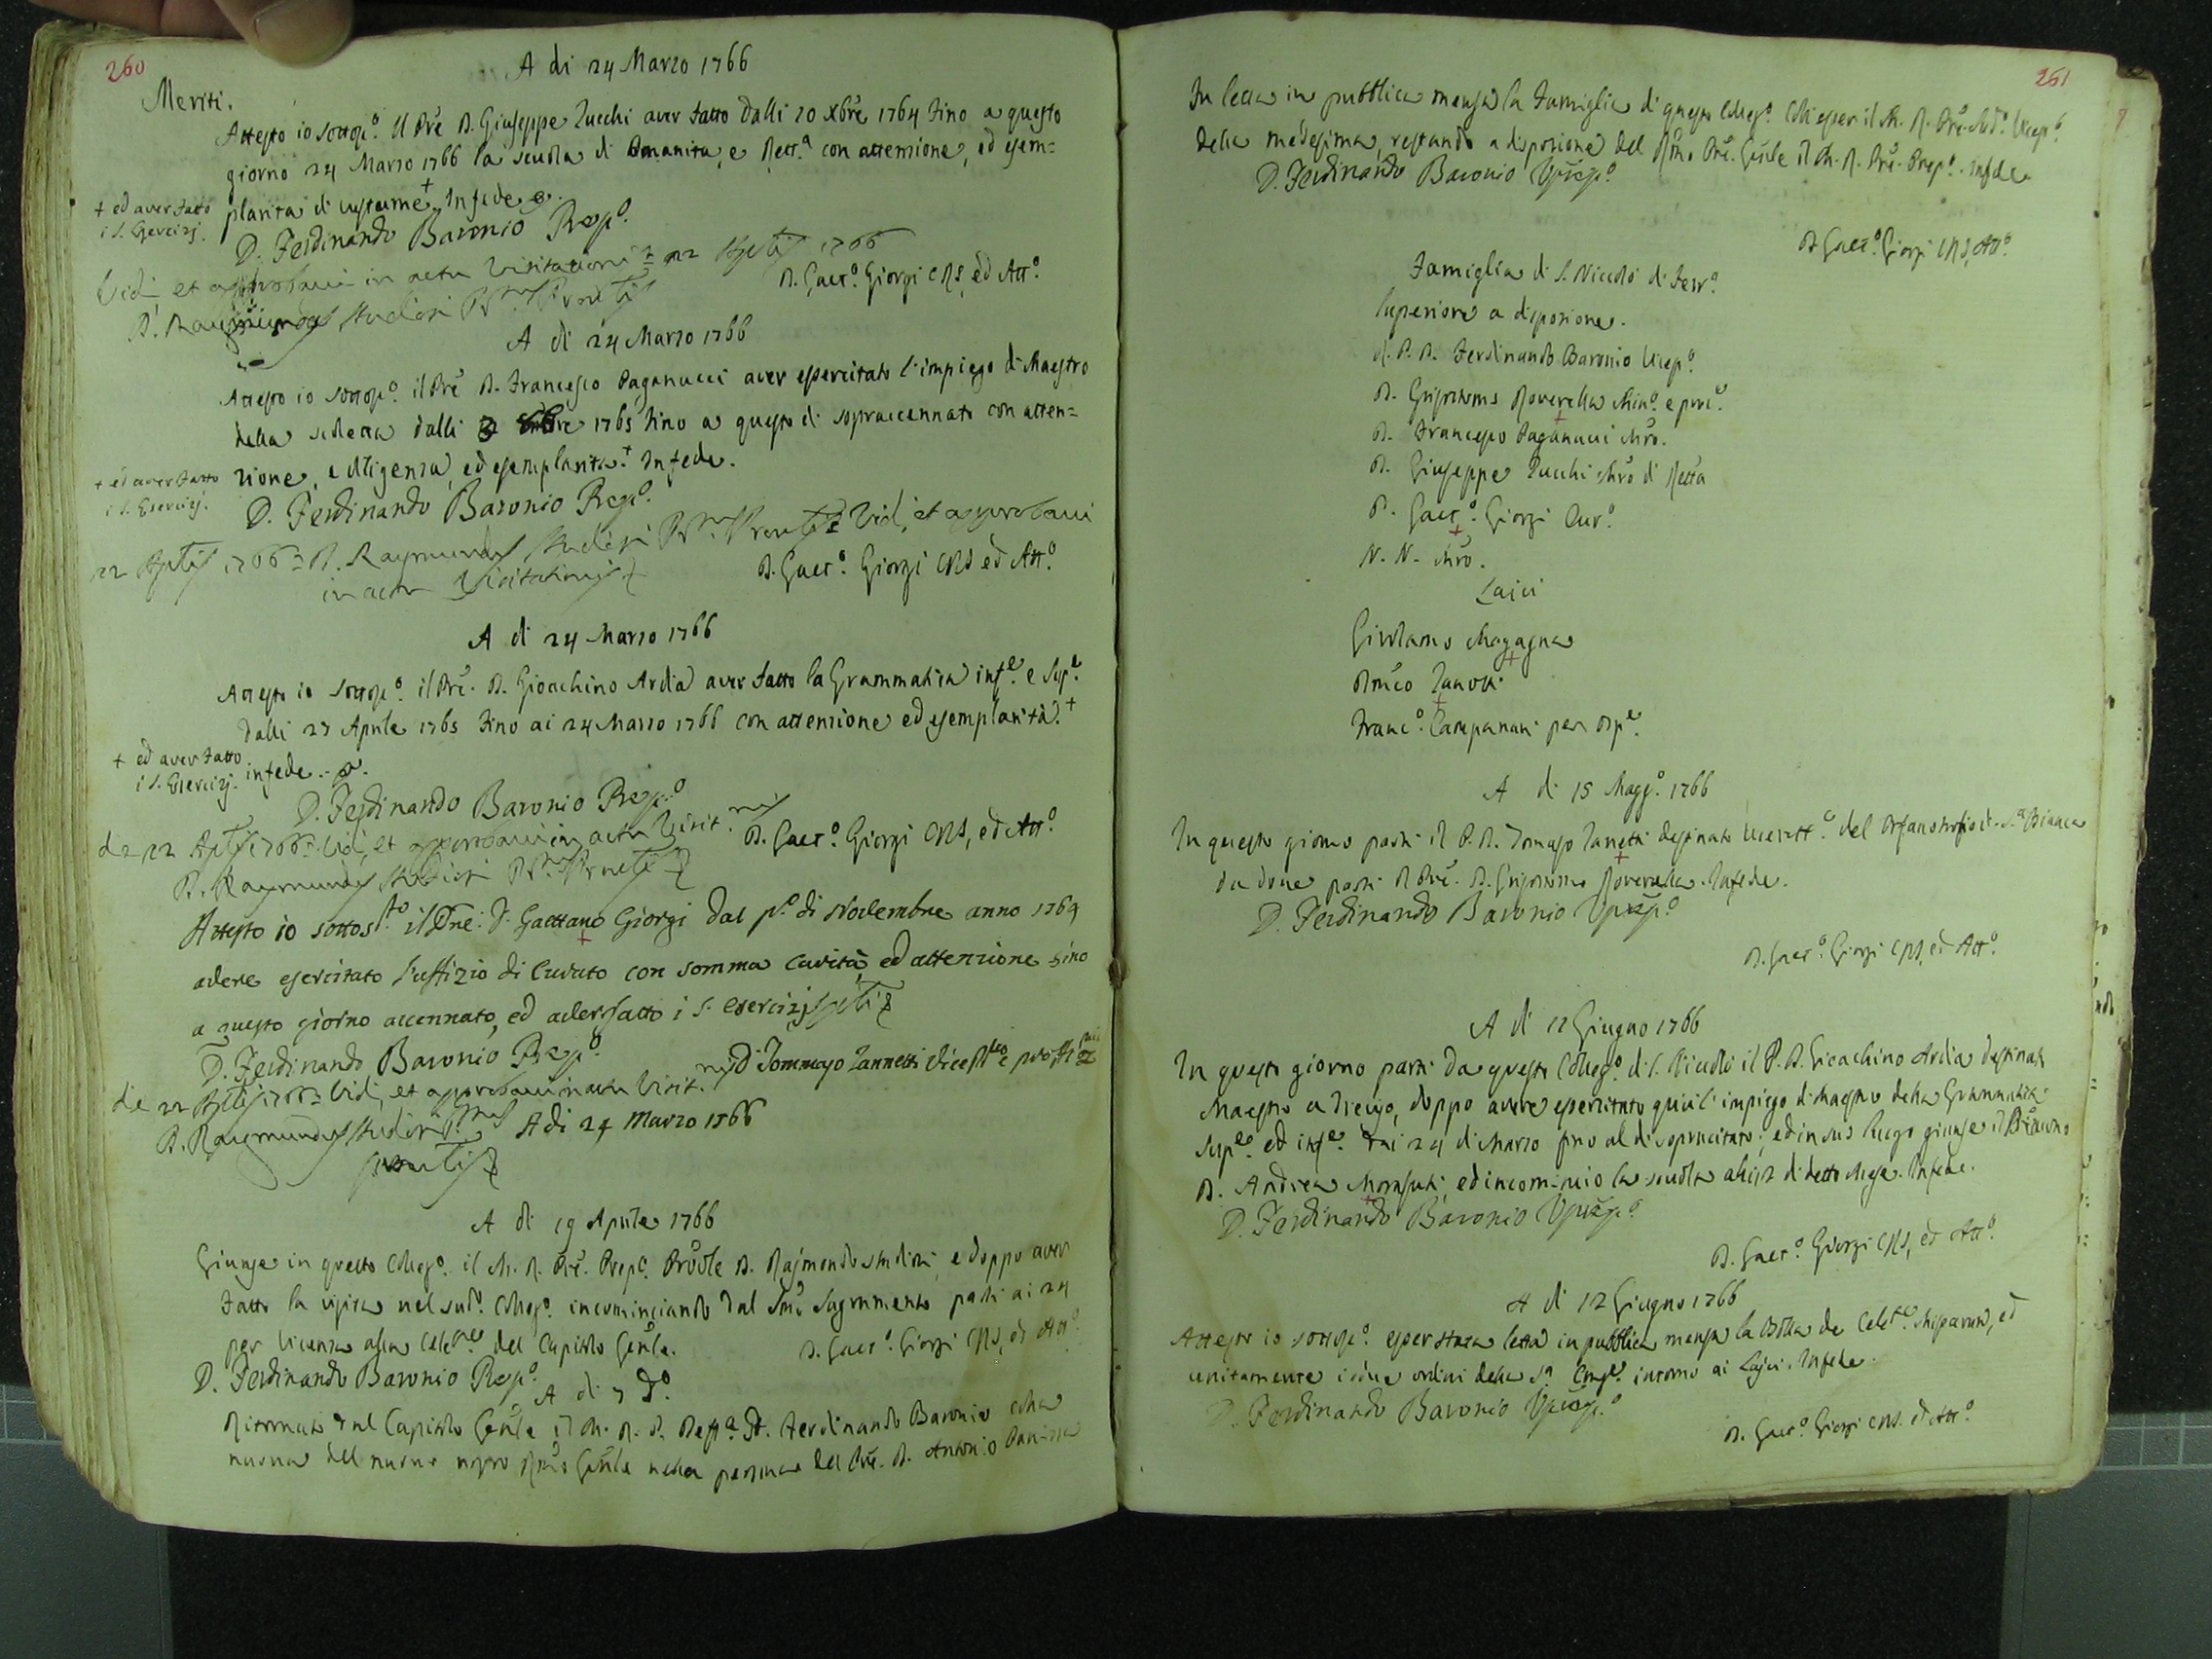 260
A di 24 Marzo 1766
Meriti.
Attesto io sottosc.º Il Prẽ D. Giuseppe Zucchi aver fatto dalli 20 Xbre 1764 fino a questo
giorno 24 Marzo 1766 la scuola di Umanita, e Rett.ª con attenzione, ed esem=
plarita di costume + In fede
+ ed aver fatto
i S. Esercizj.
D. Ferdinando Baronio Prep.º
Vidi et approbavi in actu Visitationis 22 Aplis 1766
D. Gaet.º Giorgi CRS, ed Att.º
D. Raymundus Studiosi
A di 24 Marzo 1766
Attesto io sottosc.º il Prẽ D. Francesco Paganucci aver esercitato l'impiego di Maestro
della scoletta dalli 1765 fino a questo di sopraccennato con atten=
zione, e diligenza, ed esemplarita.+ In fede.
+ ed aver fatto
i S. Esercizj.
D. Ferdinando Baronio Prep.º
22 Aplis 1766 D. Raymundus Studiosi Vidi, et approbavi
in actu Visitationis
D. Gaet.º Giorgi CRS ed Att.º
A di 24 Marzo 1766
Attesto io sottosc.º il Prẽ. D. Gioachino Ardia aver fatto la Grammatica inf.e e Sup.e
dalli 27 Aprile 1765 fino ai 24 Marzo 1766 con attenzione ed esemplarità.+
+ ed aver fatto
i S. Esercizj.
in fede.
D. Ferdinando Baronio Prep.º
die 22 Aplis 1766 Vidi, et approbavi in actu Visit.nis
D. Gaet.º Giorgi CRS, ed Att.º
D. Raymundus Studiosi
Attesto io sottos.to il Pre: D. Gaettano Giorgi dal p.º di Novembre anno 1764
avere esercitato l'uffizio di Curato con somma carità, ed attenzione sino
a questo giorno accennato, ed aver fatto i S. esercizj
D. Ferdinando Baronio Prep.º
D. Tommaso Zannetti
die 22 Aplis 1766 Vidi, et approbavi in actu Visit.nis
D. Raymundus Studiosi
A di 24 Marzo 1766
A di 19 Aprile 1766
Giunse in questo Colleg.º il M. R. Prẽ. Prep.º Provle D. Rajmondo Studiosi, e doppo aver
fatto la visita nel sud.º Colleg.º incominciando dal Smo Sagramento partì ai 24
per Vicenza alla Celeb.ne del Capitolo Gen̄le.
D. Gaet.º Giorgi CRS, ed Att.º
D. Ferdinando Baronio Prep.º
A di d.º
Ritornato dal Capitolo Gen̄le il M. R. P. D. Ferdinando Baronio colla
nuova del nuovo nostro Rm̄o Gen̄le nella persona del Prẽ. D. Antonio
261
Fu letta in pubblica mensa la Famiglia di questo Colleg.º col esser il M. R. Prẽ. Sud.º Vicep.º
della medesima, restando a disposizione del Rm̄o Prẽ. Gen̄le il M. R. Prẽ. Prep.º. In fede
D. Ferdinando Baronio Vprep.º
D. Gaet.º Giorgi CRS, Att.º
Famiglia di S. Niccolò di Ferr.ª
Superiore a disposizione.
D. Ferdinando Baronio Vicep.º
D. Grisostomo Roverella e proc.e
D. Francesco Paganucci Mrõ.
D. Giuseppe Zucchi Mrõ di Retta
D. Gaet.º Giorgi Cur.º
N. N. Mrõ.
Laici
Girolamo Magagna
Zanotti
Franc.º Campanari per Osp.e
A di 15 Magg.º 1766
In questo giorno partì il P. D. Tomaso Zanetti destinato Vicerett.e del Orfanotrofio di S.ª Bianca
da dove partì il Prẽ. D. Grisostomo Roverella. In fede.
D. Ferdinando Baronio Vprep.º
D. Gaet.º Giorgi CRS, ed Att.º
A di 12 Giugno 1766
In questo giorno partì da questo Colleg.º di S. Niccolò il P. D. Gioachino Ardia destinato
Maestro a, doppo avere esercitato quivi l'impiego di Maestro della Grammatica
Sup.e ed inf.e dai 24 di Marzo fino al di sopracitato; ed in suo luogo giunse il
D. Andrea, ed incominciò la scuola alli 12 di detto Mese. In fede.
D. Ferdinando Baronio Vprep.º
D. Gaet.º Giorgi CRS, ed Att.º
A di 12 Giugno 1766
Attesto io sottosc.º esser stata letta in pubblica mensa la Bolla de Celeb.e Missarum, ed
unitamente i due ordini della S.ª Cong.e intorno ai Lajci. In fede.
D. Ferdinando Baronio Vprep.º
D. Gaet.º Giorgi CRS. ed Att.º